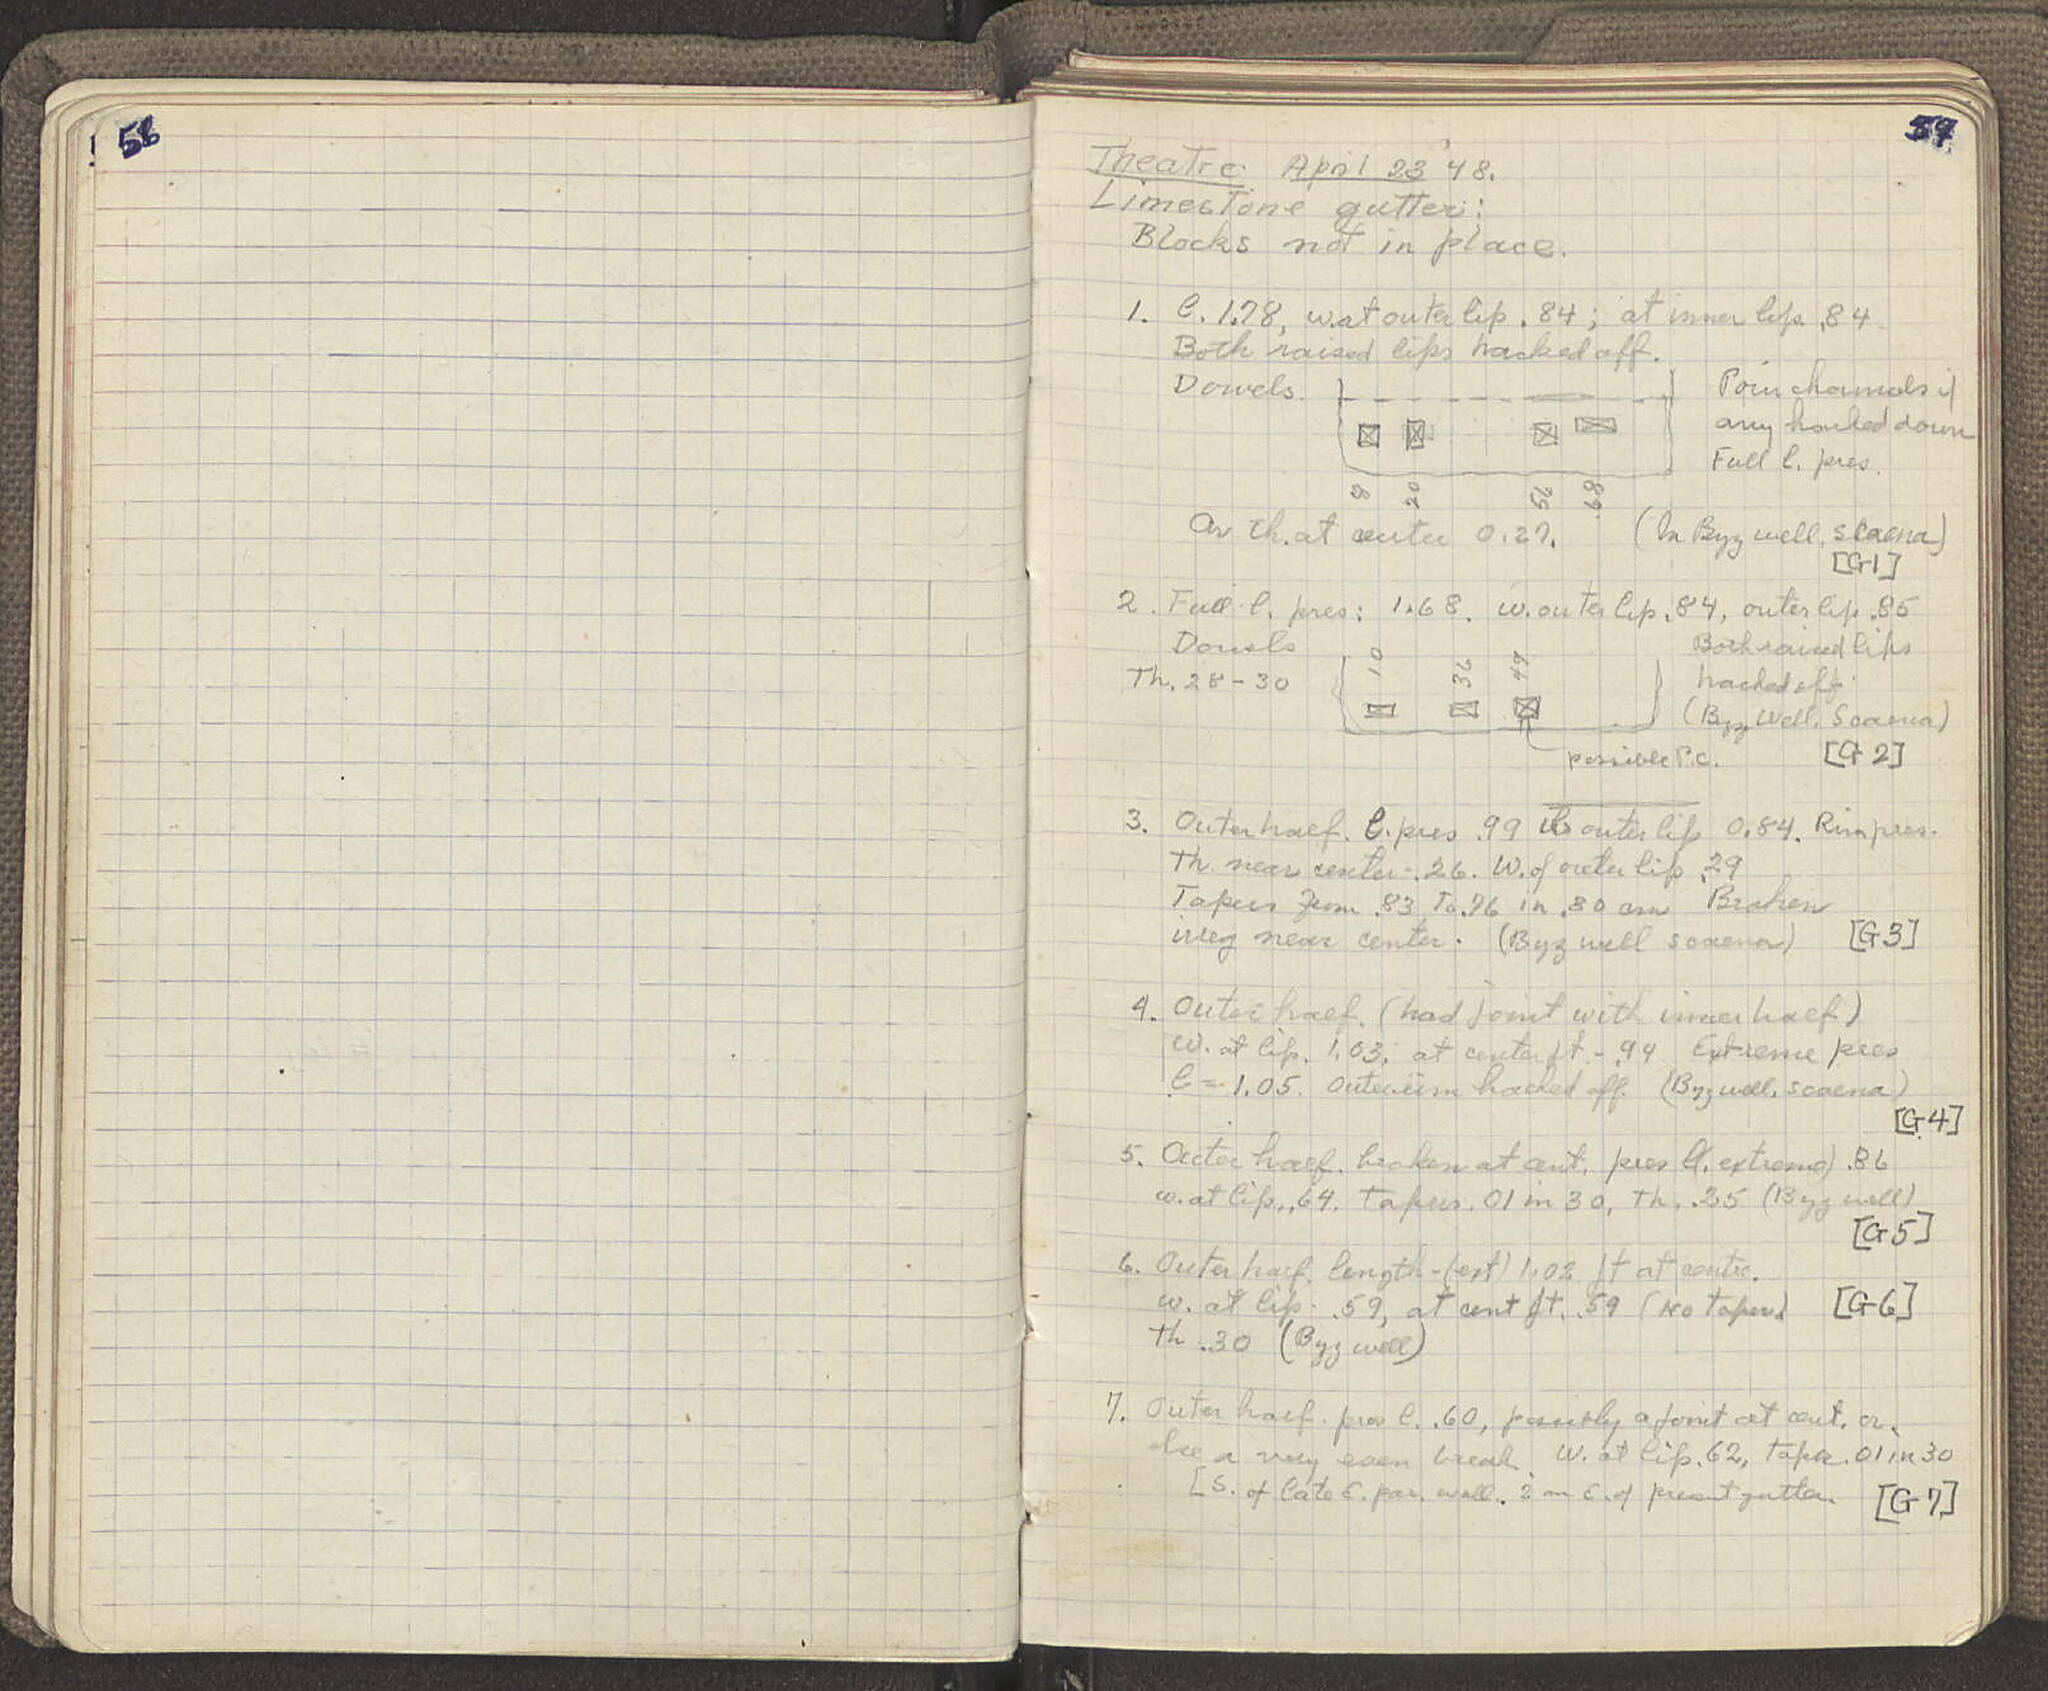 58
57
Theatre April 23 '48.
Limestone gutter:
Blocks not in place.
1. l. 1.78, w. at outer lip .84; at inner lip .84
Both raised lips hacked off.
Dowels.
Pour channels if
any hacked down
Full l. pres.
8 20 56 68
Av th. at center 0.27. (In Byz well, scaena)
[G1]
2. Full l. pres: 1.68. w. outer lip .84, outer lip .85
Dowels
Both raised lips
Th. 28-30
10 36 49
hacked off
(Byz Well. Scaena)
possible P.C.
[G2]
3. Outer half. l. pres .99 outer lip 0.84. Rim pres.
Th. near center .26. W. of outer lip .29
Tapers from .83 to .76 in .80 cm Broken
irreg near center. (Byz well scaena) [G3]
4. Outer half. (had joint with inner half)
w. at lip. 1.03. at center jt - .94 Extreme pres
l = 1.05. Outer rim hacked off. (Byz well, scaena)
[G4]
5. Outer half. broken at cent. pres (l. extreme) .86
w. at lip .64. Tapers .01 in 30, Th. .25 (Byz well)
[G5]
6. Outer half. length - (ext) 1.02 jt at centre.
w. at lip .59, at cent jt. .59 (No taper) [G6]
Th .30 (Byz well)
7. Outer half. pres l. .60, possibly a joint at cent. or
else a very even break. W. at lip .62, taper .01 in 30
[S. of late E. par. wall. 2 m E. of present gutter. [G7]